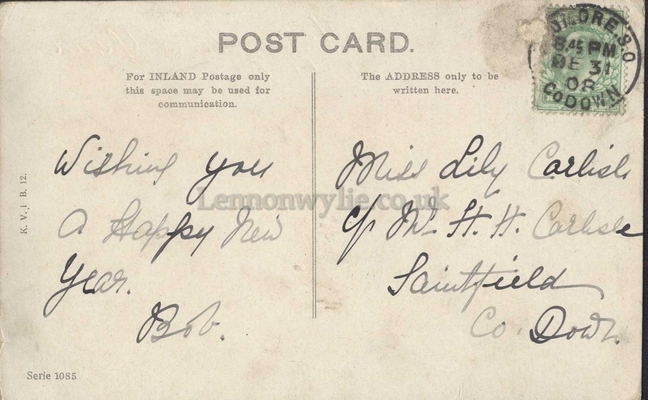 POST CARD.
For INLAND Postage only
this space may be used for
communication.
The ADDRESS only to be
written here.
8.45 PM
DE 31
08
Co DOWN
K. V. i B. 12.
Wishing you
a Happy New
Year.
Bob.
Miss Lily Carlisle
c/o Mr. H. H. Carlisle
Saintfield
Co. Down.
Lennonwylie.co.uk
Serie 1085